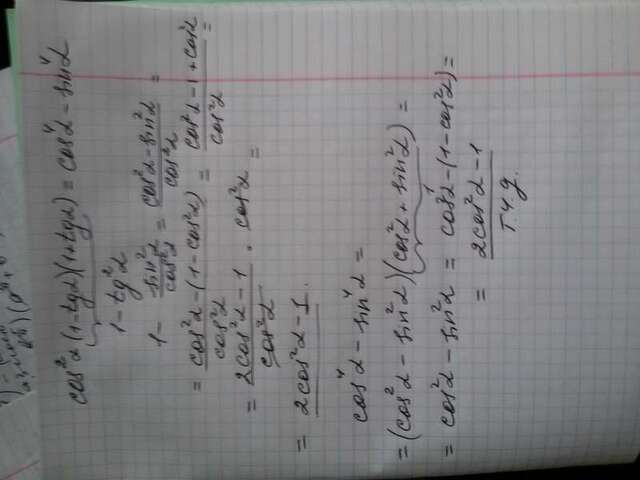 cos²α(1-tgα)(1+tgα) = cos⁴α - sin⁴α
1 - tg²α
1 - sin²α/cos²α = (cos²α - sin²α)/cos²α =
= (cos²α - (1 - cos²α))/cos²α = (cos²α - 1 + cos²α)/cos²α =
= (2cos²α - 1)/cos²α · cos²α =
= 2cos²α - 1.
cos⁴α - sin⁴α =
= (cos²α - sin²α)(cos²α + sin²α) =
1
= cos²α - sin²α = cos²α - (1 - cos²α) =
= 2cos²α - 1
т.ч.д.